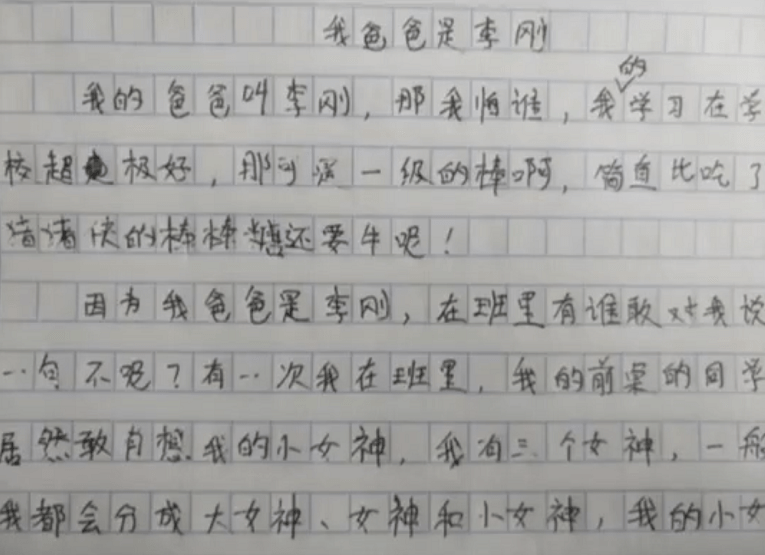 我爸爸是李刚
我的爸爸叫李刚，那我怕谁，我的学习在学
校超极好，那可是一级的棒啊，简直比吃了
猪猪侠的棒棒糖还要牛呢！
因为我爸爸是李刚，在班里有谁敢对我说
一句不呢？有一次我在班里，我的前桌的同学
居然敢肖想我的小女神，我有三个女神，一般
我都会分成大女神、女神和小女神，我的小女